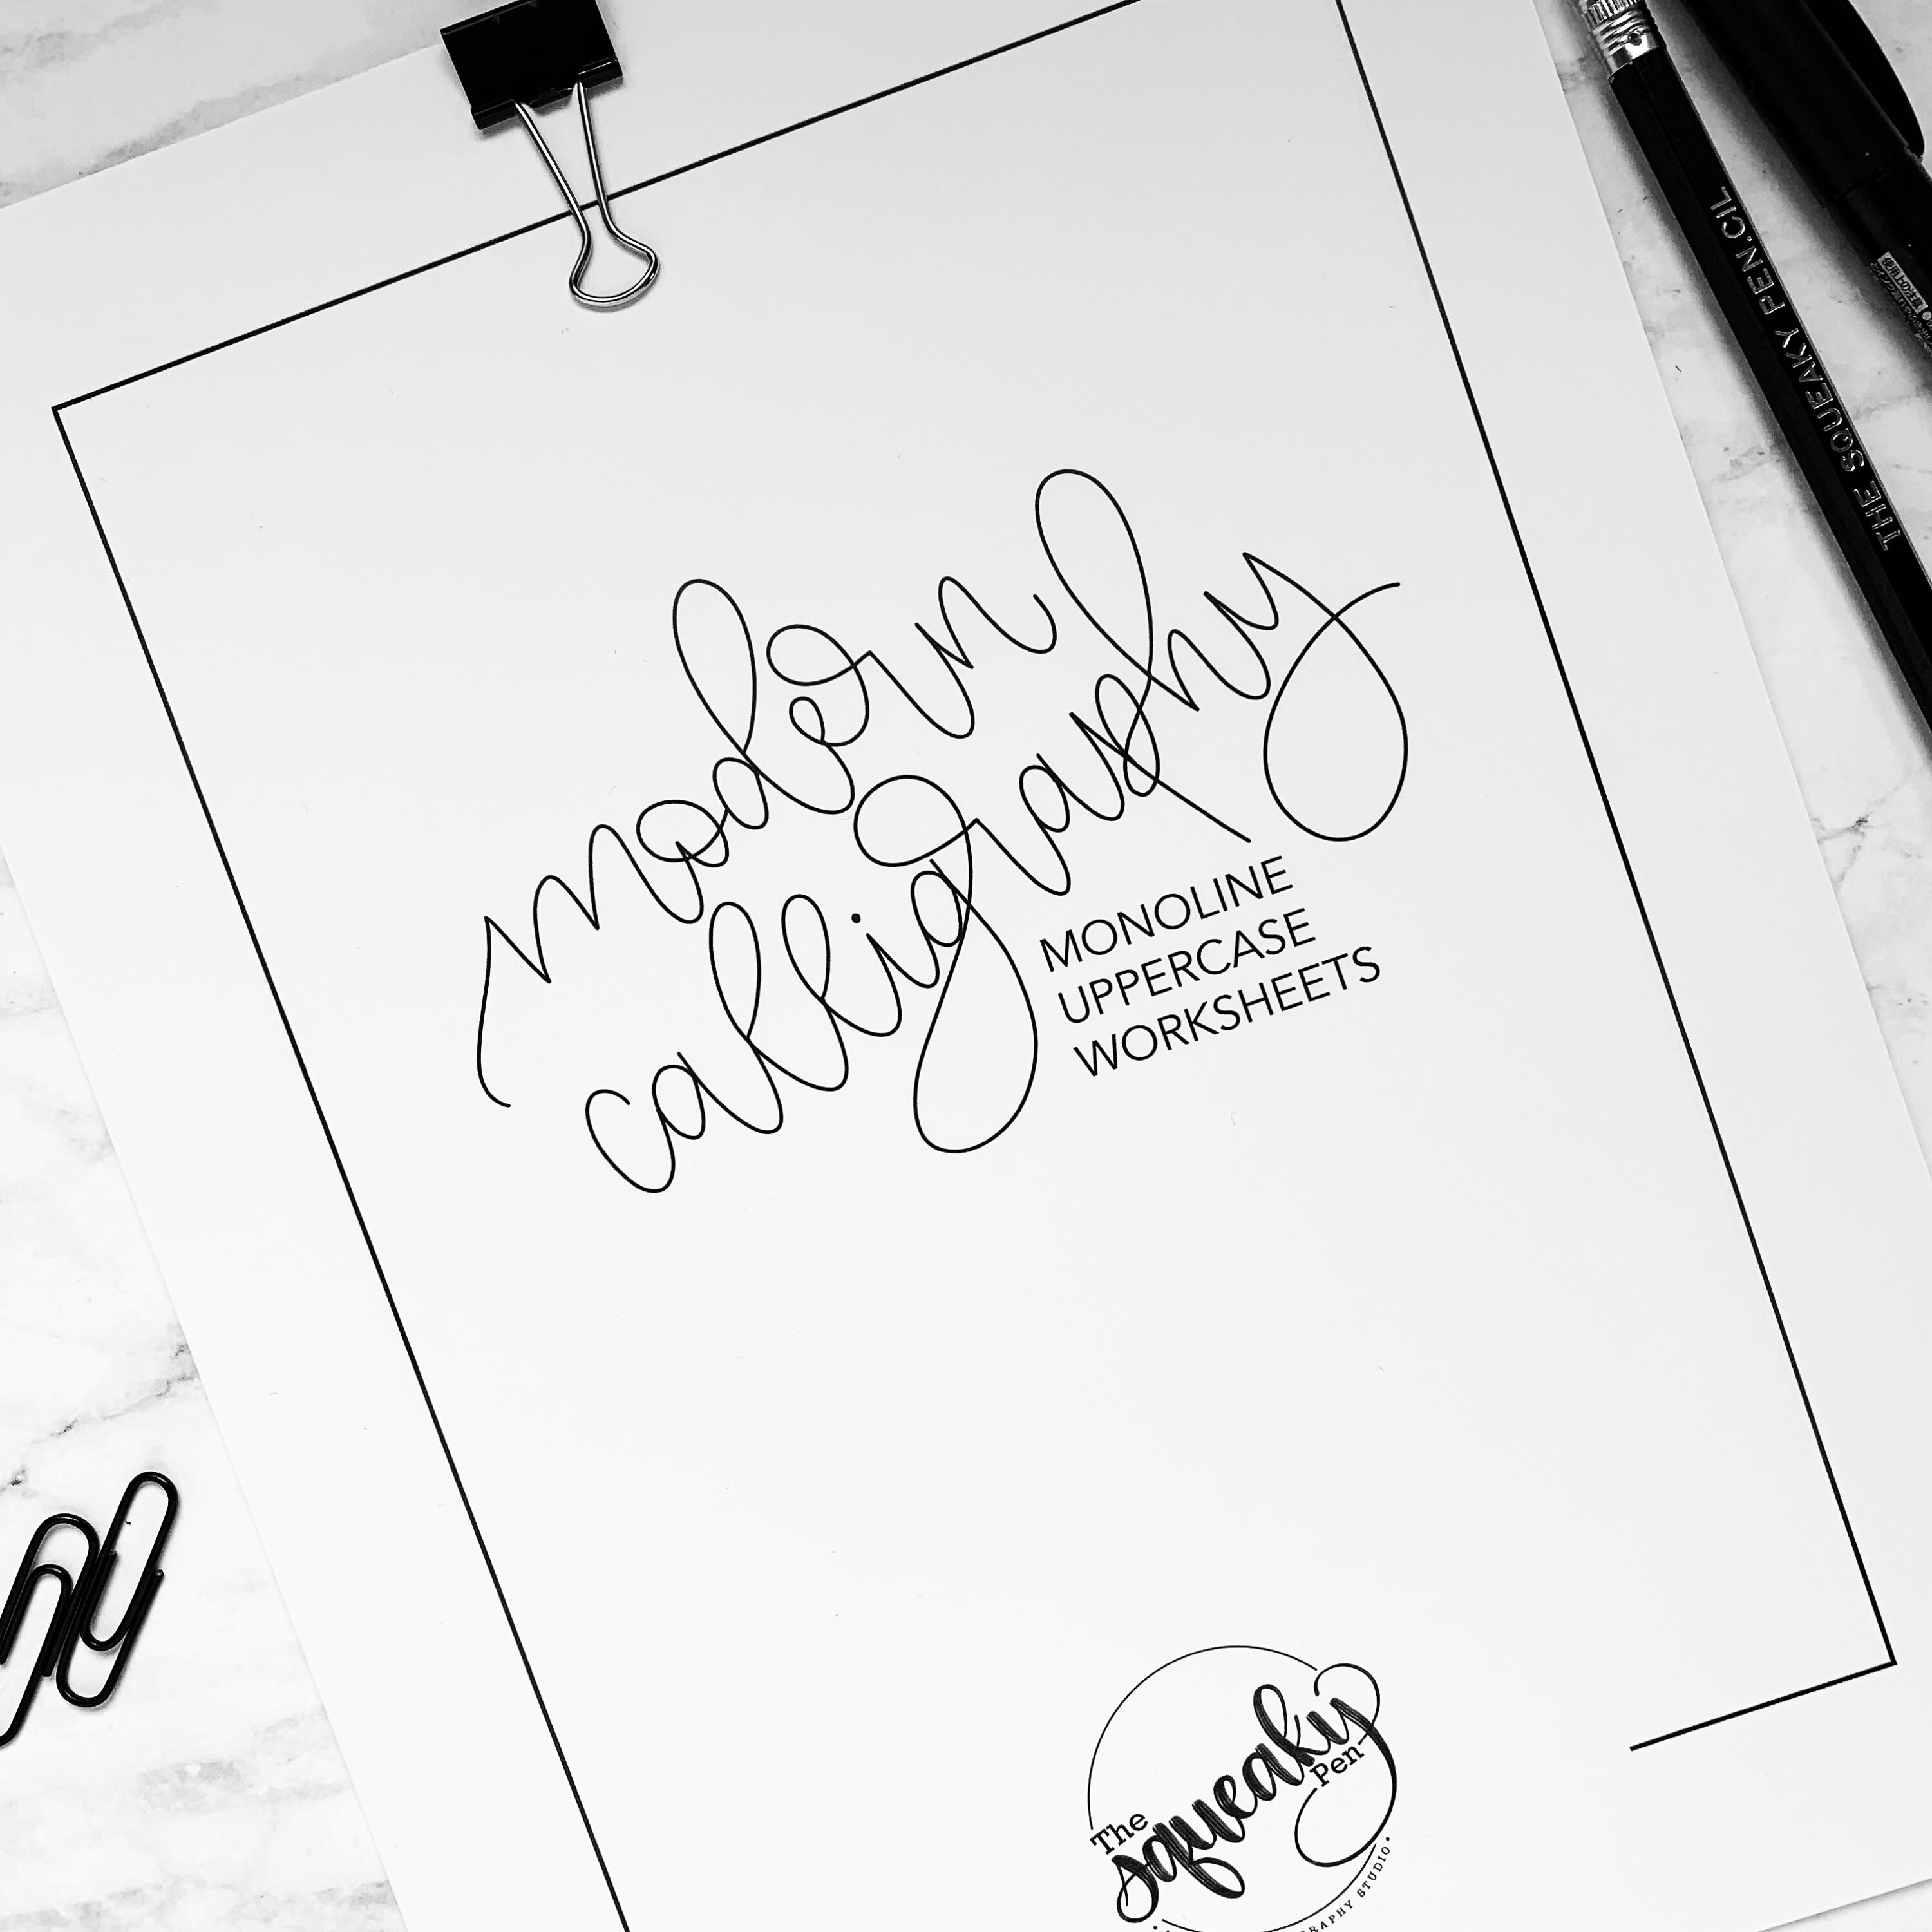 modern
calligraphy
MONOLINE
UPPERCASE
WORKSHEETS
The
squeaky
Pen
STUDIO
THE SQUEAKY PEN.CIL